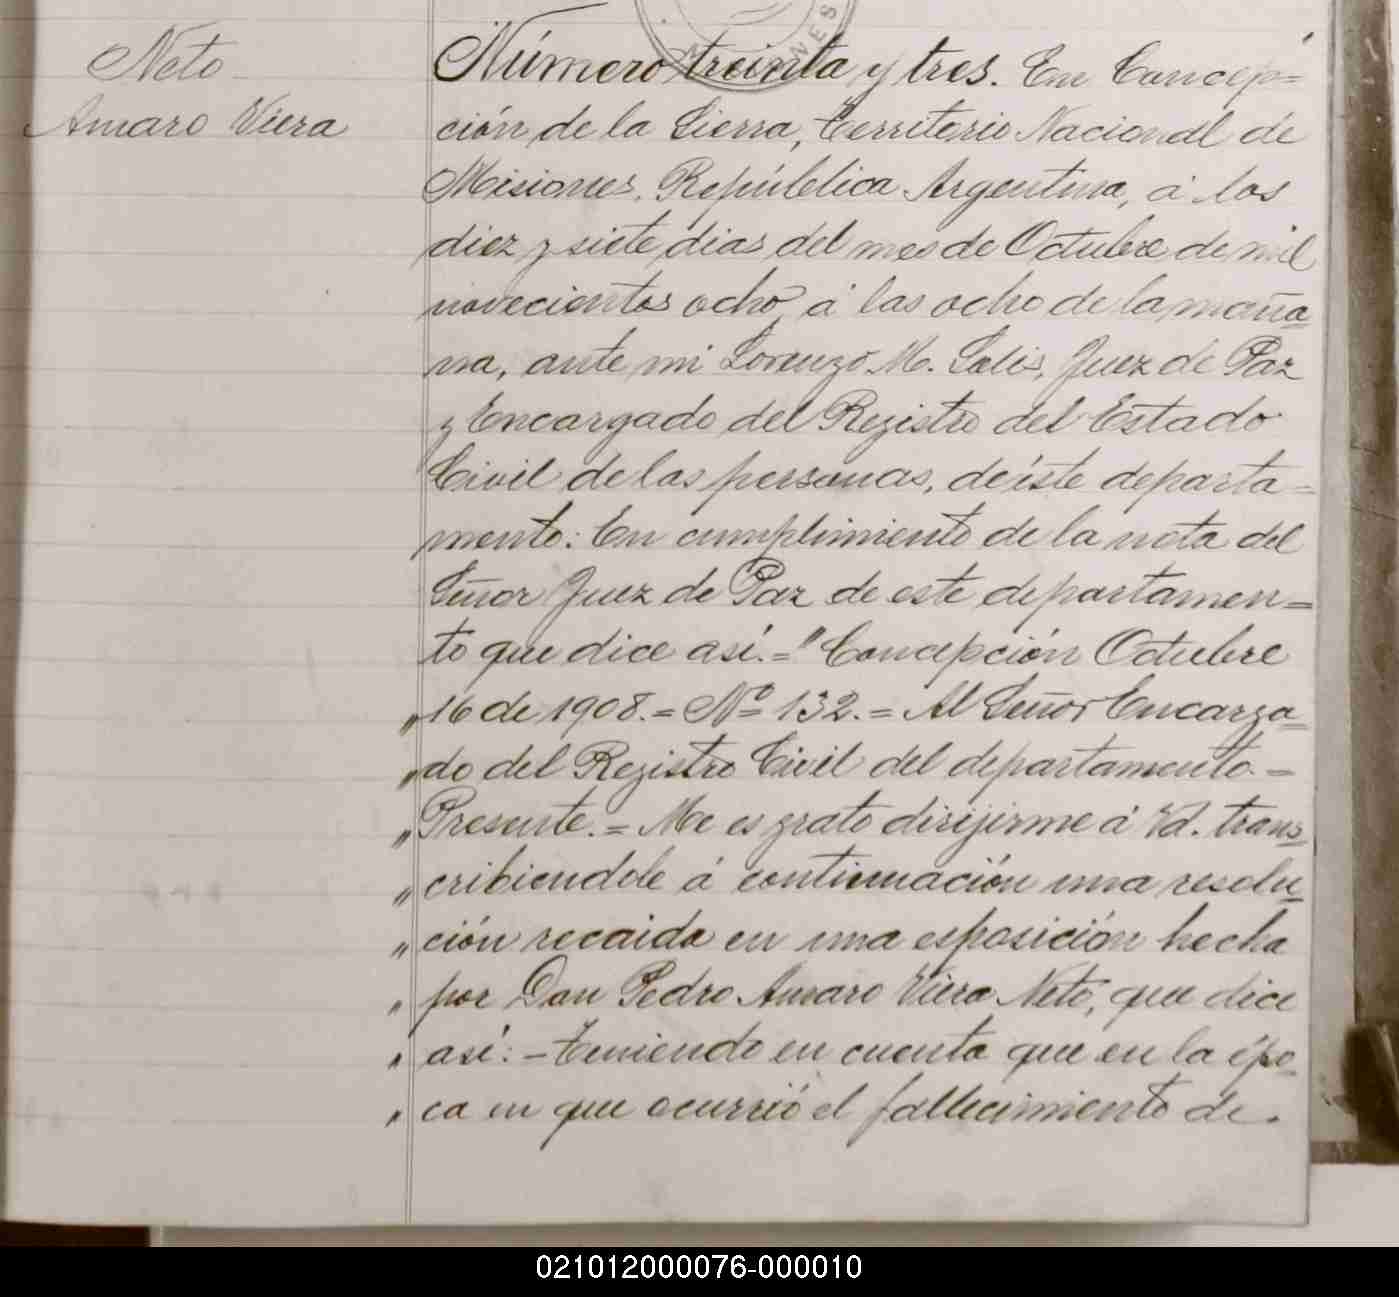 Neto
Amaro Viera
Número treinta y tres. En Concep=
ción de la Sierra, Territorio Nacional de
Misiones, República Argentina, á los
diez y siete dias del mes de Octubre de mil
novecientos ocho, á las ocho de la maña=
na, ante mi Lorenzo M. Solis, Juez de Paz
y Encargado del Registro del Estado
Civil de las personas, de éste departa=
mento: En cumplimiento de la nota del
Señor Juez de Paz de este departamen=
to que dice así.="Concepción Octubre
"16 de 1908.= Nº 132.= Al Señor Encarga=
"do del Registro Civil del departamento.=
"Presente.= Me es grato dirijirme á Vd. trans=
"cribiendole á continuación una resolu=
"ción recaida en una esposición hecha
"por Don Pedro Amaro Viera Neto, que dice
"así:- Teniendo en cuenta que en la épo=
"ca en que ocurrió el fallecimiento de.
NES
021012000076-000010